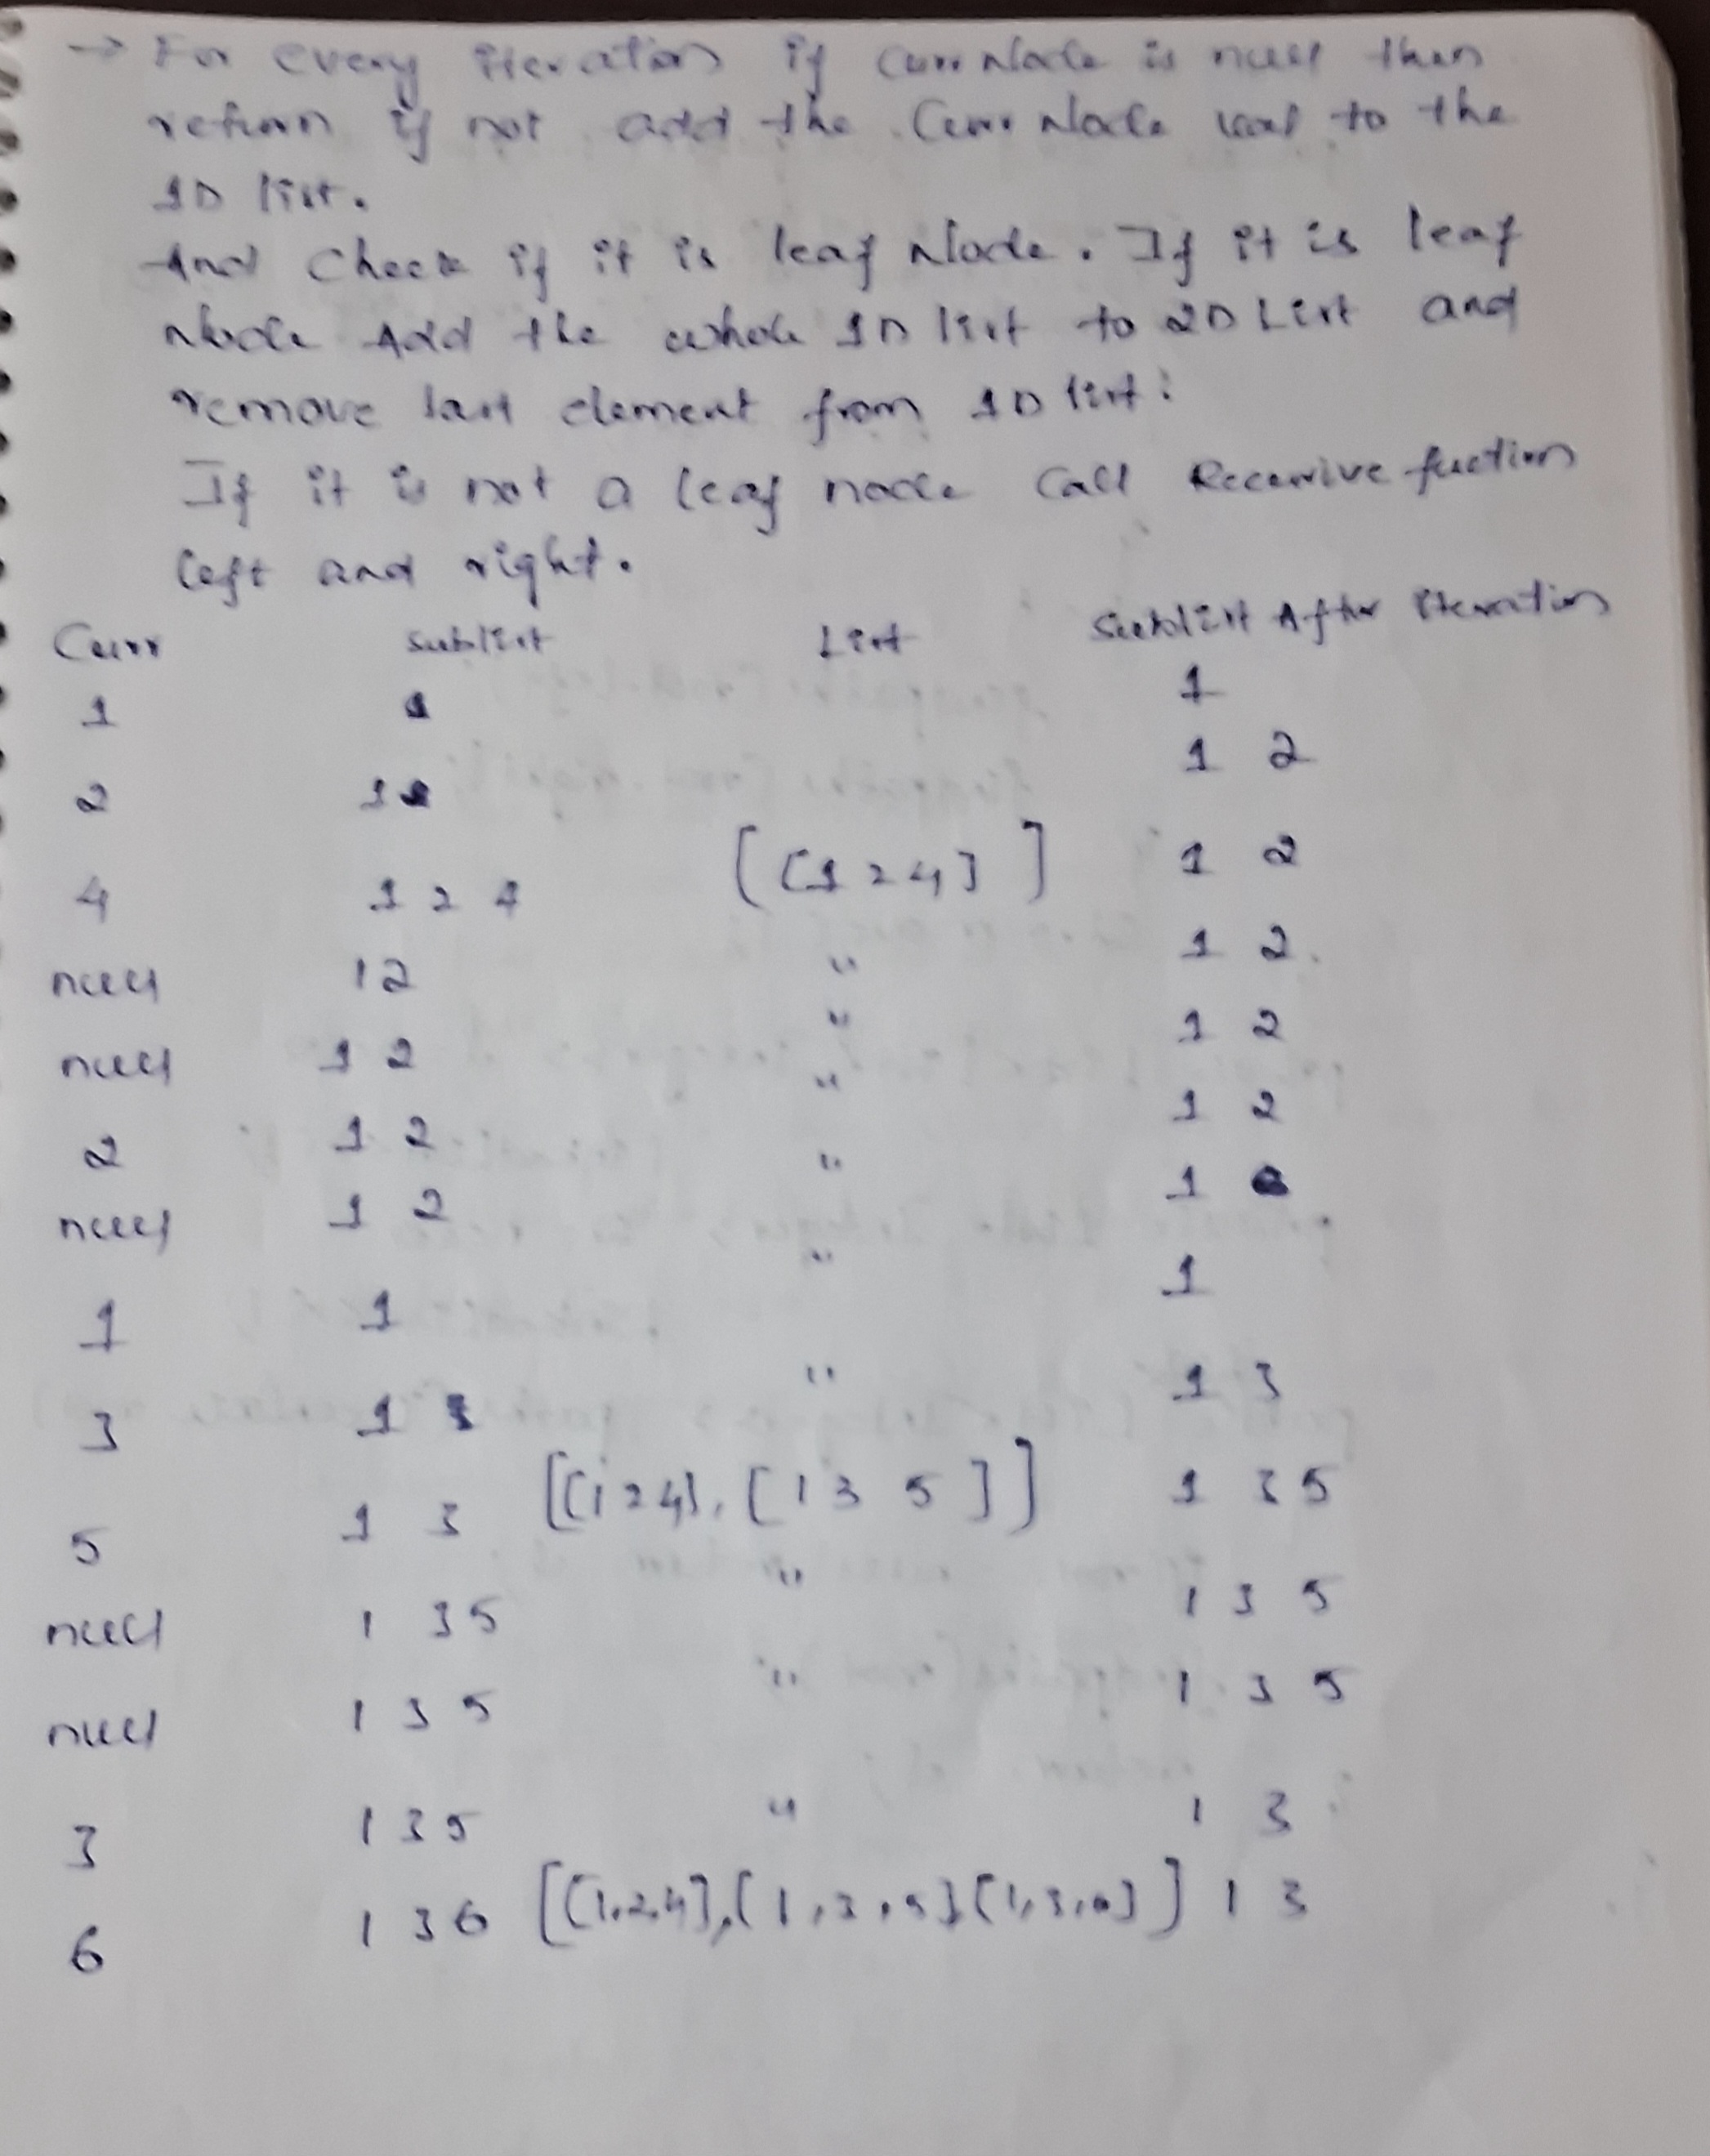 → For every iteration if CurrNode is null then
return if not add the CurrNode val to the
1D list.
And Check if it is leaf Node. If it is leaf
Node Add the whole 1D list to 2D List and
remove last element from 1D list.
If it is not a leaf node Call Recursive fuction
left and right.
Curr sublist List Sublist After iteration
1 1 1
2 1 2 1 2
4 1 2 4 [[1 2 4]] 1 2
null 1 2 " 1 2
null 1 2 " 1 2
2 1 2 " 1 2
null 1 2 " 1
1 1 " 1
3 1 3 " 1 3
5 1 3 [[1 2 4], [1 3 5]] 1 3 5
null 1 3 5 " 1 3 5
null 1 3 5 " 1 3 5
3 1 3 5 " 1 3
6 1 3 6 [[1,2,4],[1,3,5][1,3,6]] 1 3